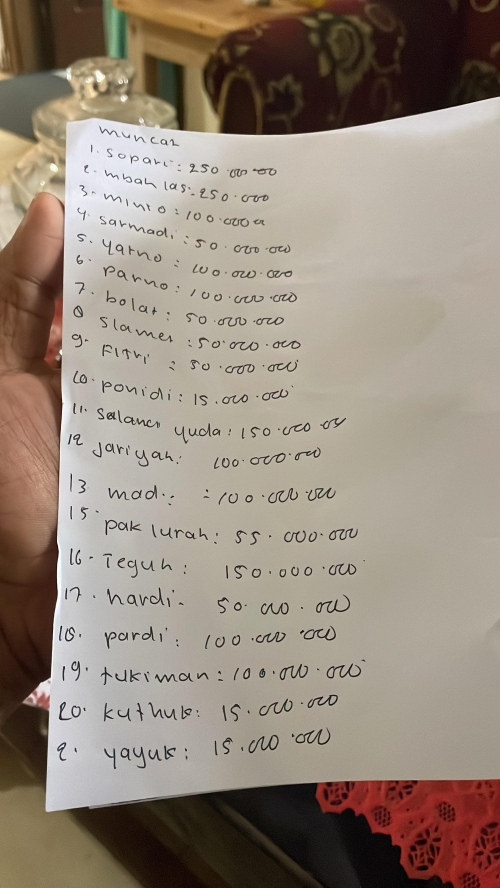 muncar
1. sopari: 250.000.000
2. mbah las: 250.000
3. minto: 100.000.0
4. sarmadi: 50.000.000
5. yatno: 100.000.000
6. parno: 100.000.000
7. bolat: 50.000.000
8 slamet: 50.000.000
9. Fitri: 50.000.000
10. ponidi: 15.000.000
11. yuda: 150.000.00
12 Jariyah: 100.000.000
13 mad.: =100.000.000
15. pak lurah: 55.000.000
16. Teguh: 150.000.000
17. hardi- 50.000.000
18. pardi: 100.000.000
19. tukiman: 100.000.000
20. kuthuk: 15.000.000
2. yayuk: 15.000.000